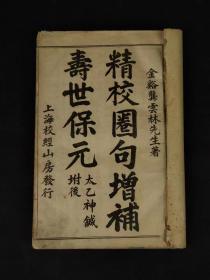 金谿龔雲林先生著
精校圈句增補
壽世保元
太乙神鍼
坿後
上海校經山房發行